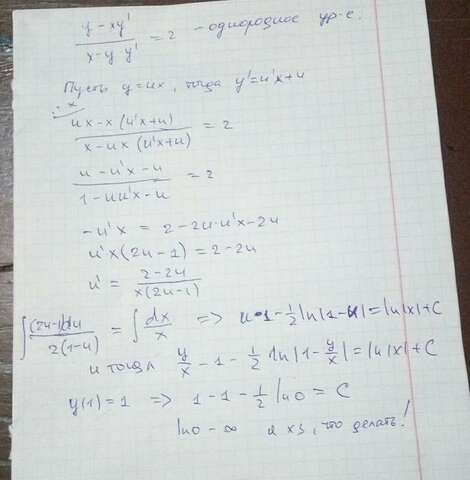 (y - xy')/(x - y·y') = 2 - однородное ур-е.
Пусть y = ux, тогда y' = u'x + u
: x
(ux - x(u'x + u))/(x - ux(u'x + u)) = 2
(u - u'x - u)/(1 - uu'x - u) = 2
-u'x = 2 - 2u·u'x - 2u
u'x(2u - 1) = 2 - 2u
u' = (2 - 2u)/(x(2u - 1))
∫ (2u-1)du/(2(1-u)) = ∫ dx/x => u - 1 - 1/2 ln|1-u| = ln|x| + C
и тогда y/x - 1 - 1/2 ln|1 - y/x| = ln|x| + C
y(1) = 1 => 1 - 1 - 1/2 ln0 = C
ln0 - ∞ и хз, что делать!